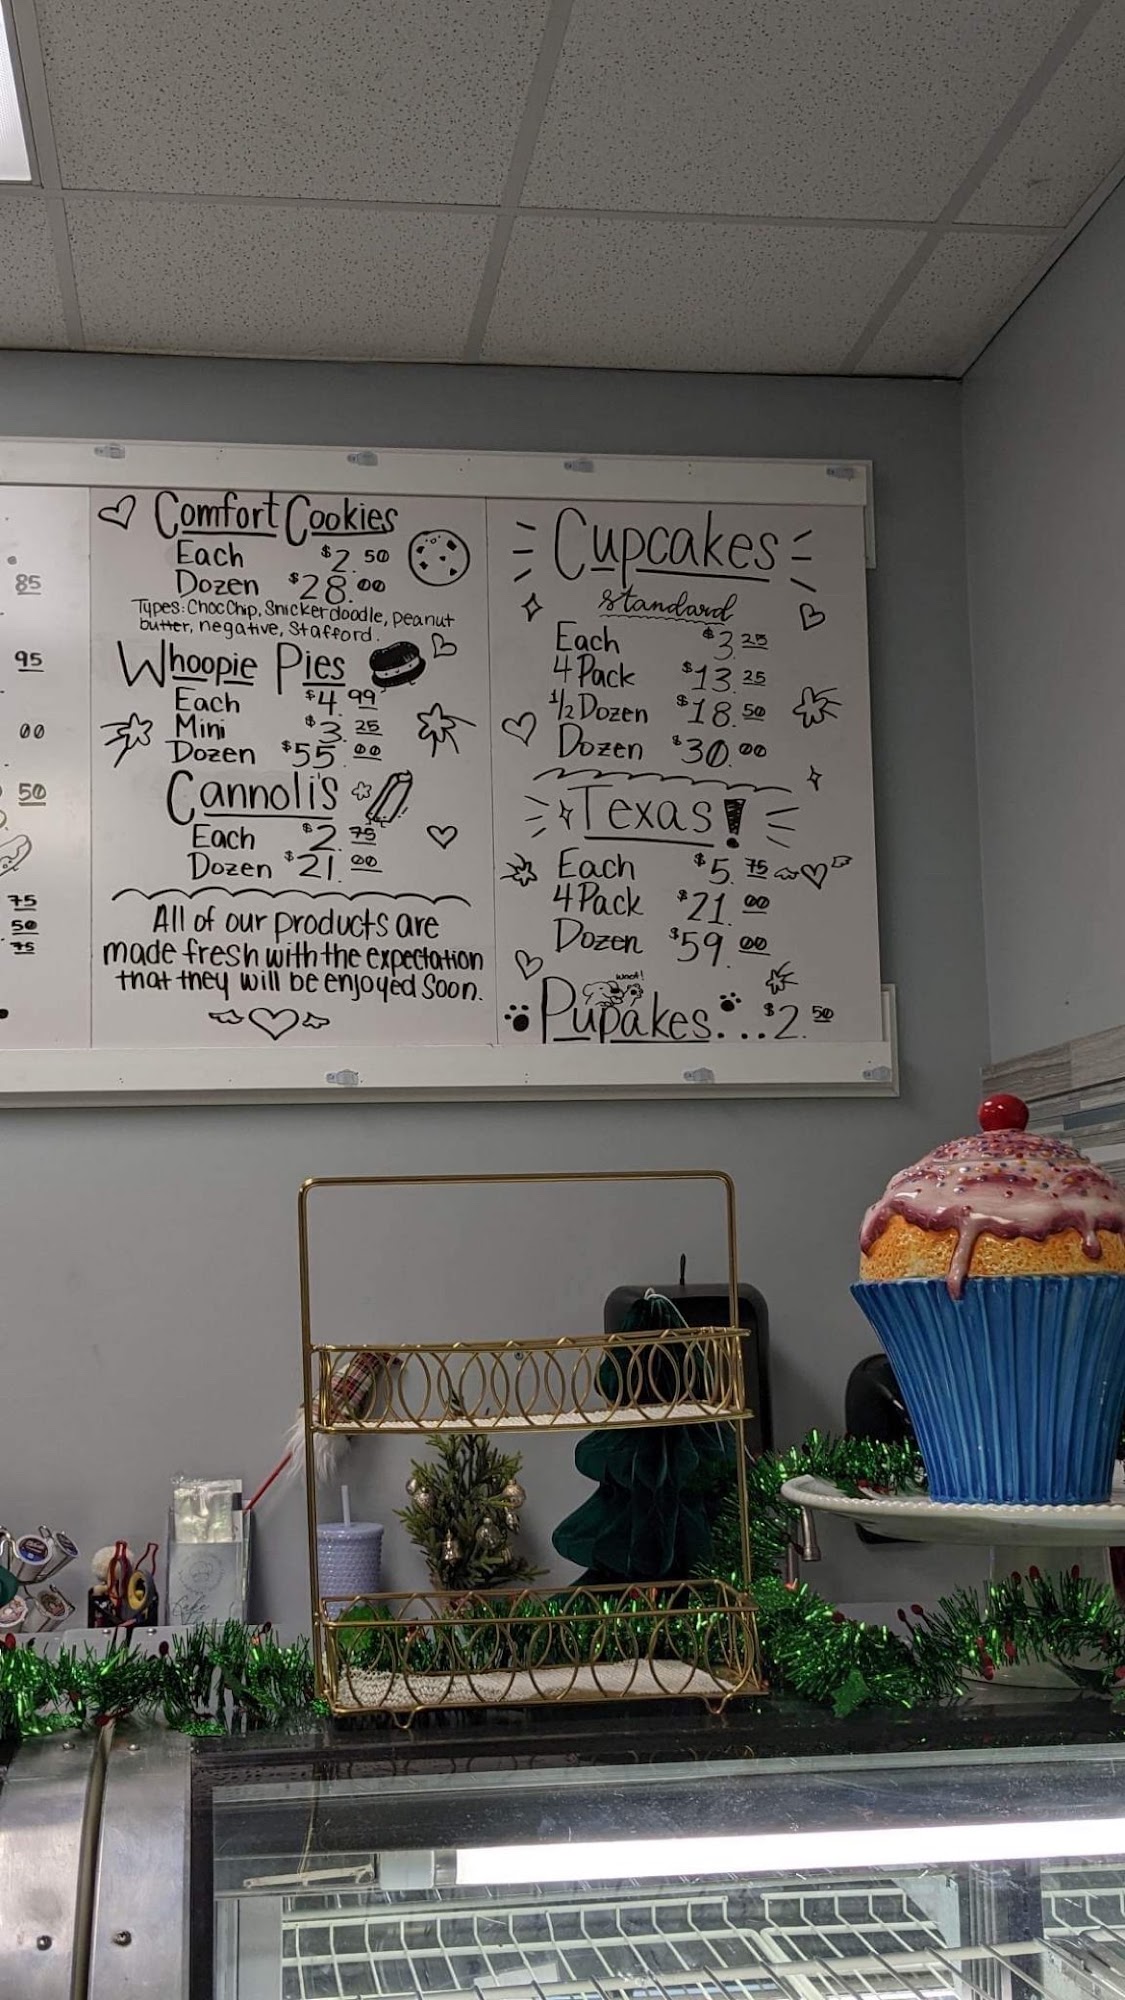 85
95
00
50
75
50
75
Comfort Cookies
Each $2.50
Dozen $28.00
Types: Choc Chip, Snickerdoodle, peanut
butter, negative, Stafford.
Whoopie Pies
Each $4.99
Mini $3.25
Dozen $55.00
Cannoli's
Each $2.75
Dozen $21.00
All of our products are
made fresh with the expectation
that they will be enjoyed soon.
Cupcakes
standard
Each $3.25
4 Pack $13.25
1/2 Dozen $18.50
Dozen $30.00
Texas!
Each $5.75
4 Pack $21.00
Dozen $59.00
woof!
Pupakes...$2.50